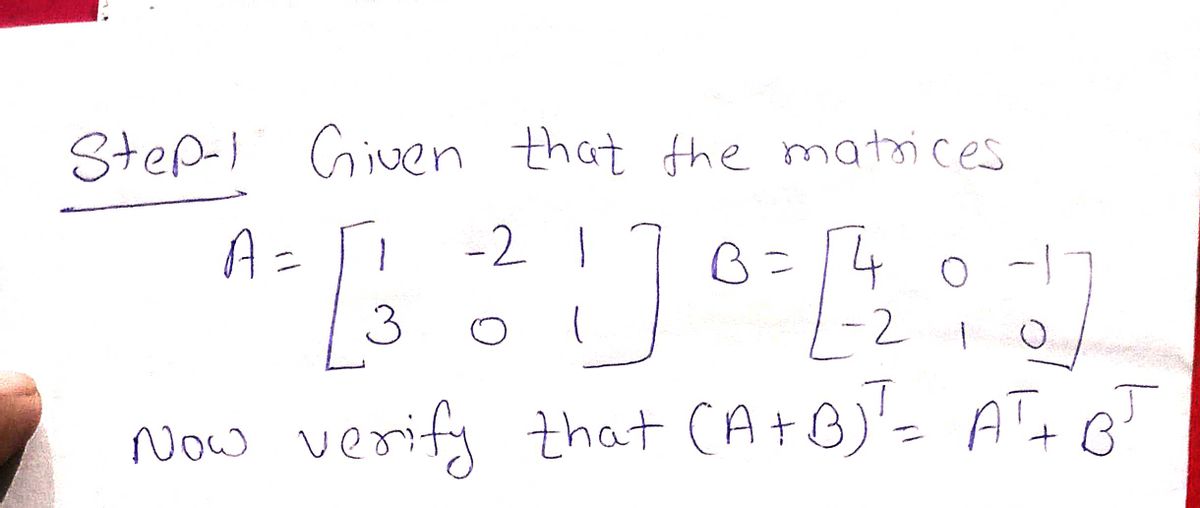 Step-1 Given that the matrices
A = [1 -2 1 B = [4 0 -1
3 0 1] -2 1 0]
Now verify that (A+B)ᵀ = Aᵀ + Bᵀ